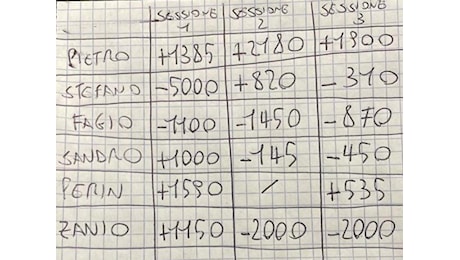 SESSIONE 1 SESSIONE 2 SESSIONE 3
PIETRO +1385 +2180 +1900
STEFANO -5000 +820 -310
FAGIO -1100 -1450 -870
SANDRO +1000 -145 -450
PERIN +1590 / +535
ZANIO +1150 -2000 -2000